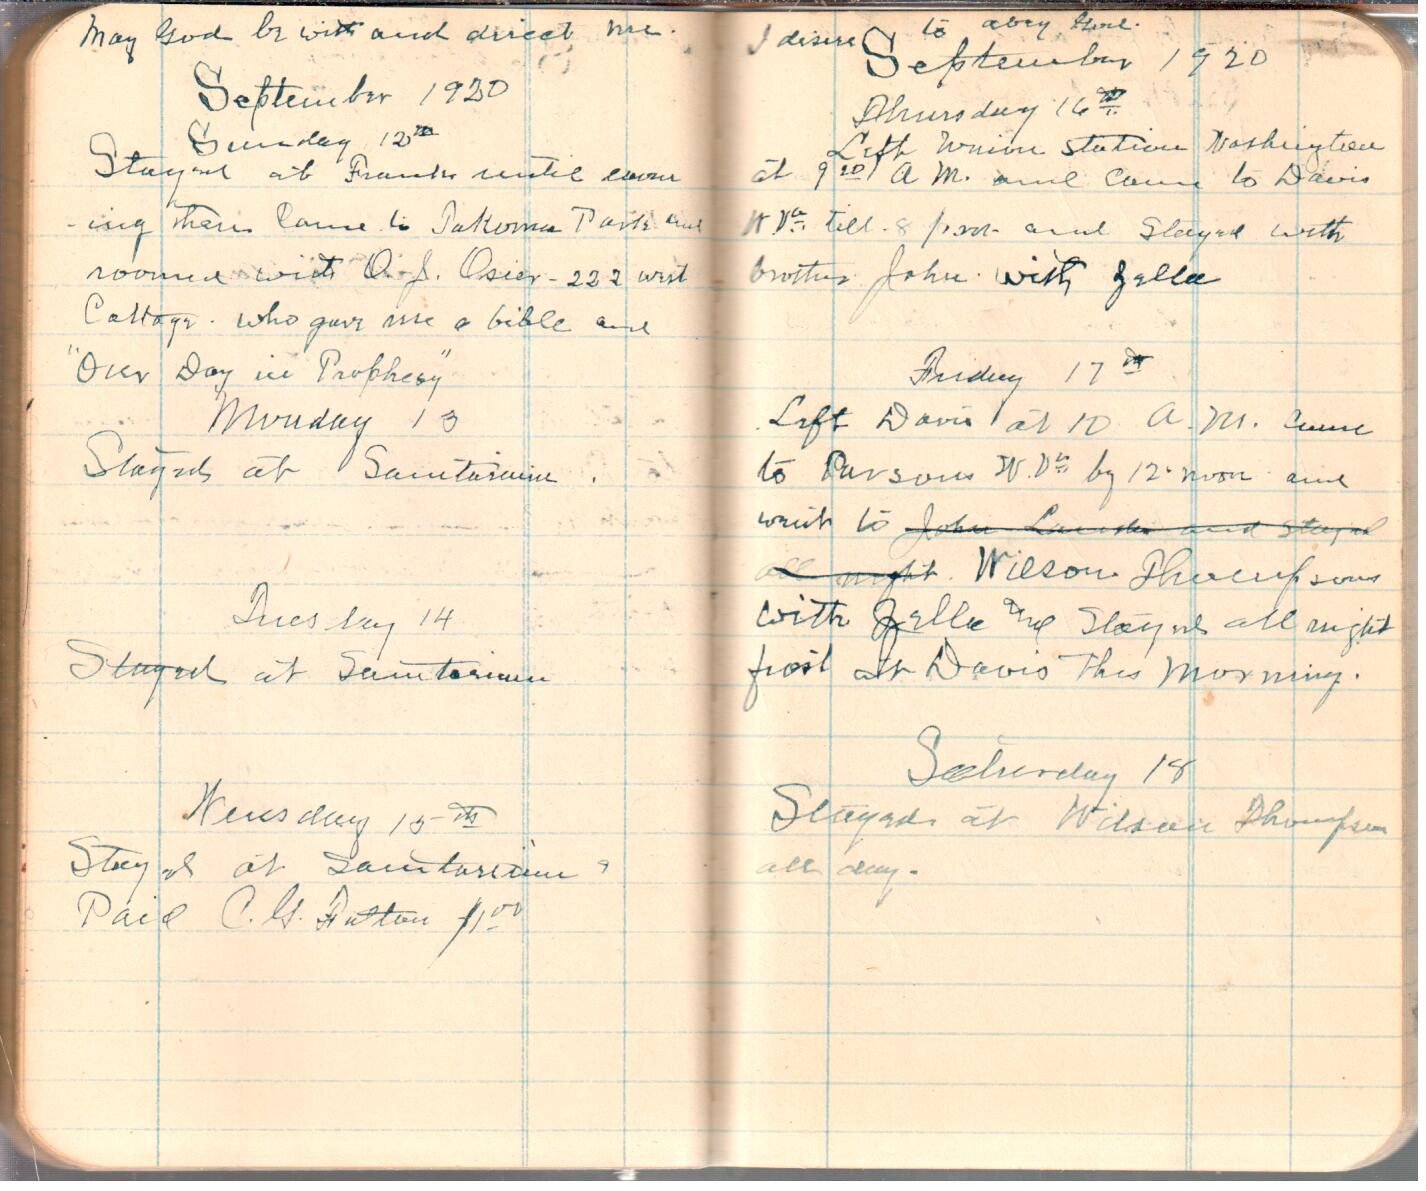 May God be with and direct me.
September 1920
Sunday 12th
Stayed at Franks until even
-ing then Came to Takoma Park and
roomed with O. J. Osier - 222 west
Cottage. who gave me a bible and
"Our Day in Prophesy"
Monday 13
Stayed at Sanitarium.
Tuesday 14
Stayed at Sanitarium
Wensday 15th
Stayed at Sanitarium
Paid C. G. $1.00
I desire to obey God.
September 1920
Thursday 16th
Left Union Station Washington
at 9 20 A M. and came to Davis
W Va. till 8 p.m. and Stayed with
brother John with Zella
Friday 17th
Left Davis at 10 A. M. Came
to Parsons W. Va by 12 noon and
went to John and stayed
all night Wilson Thompsons
with Zella and Stayed all night
frost at Davis This Morning.
Saturday 18
Stayed at Wilson Thompson
all day.